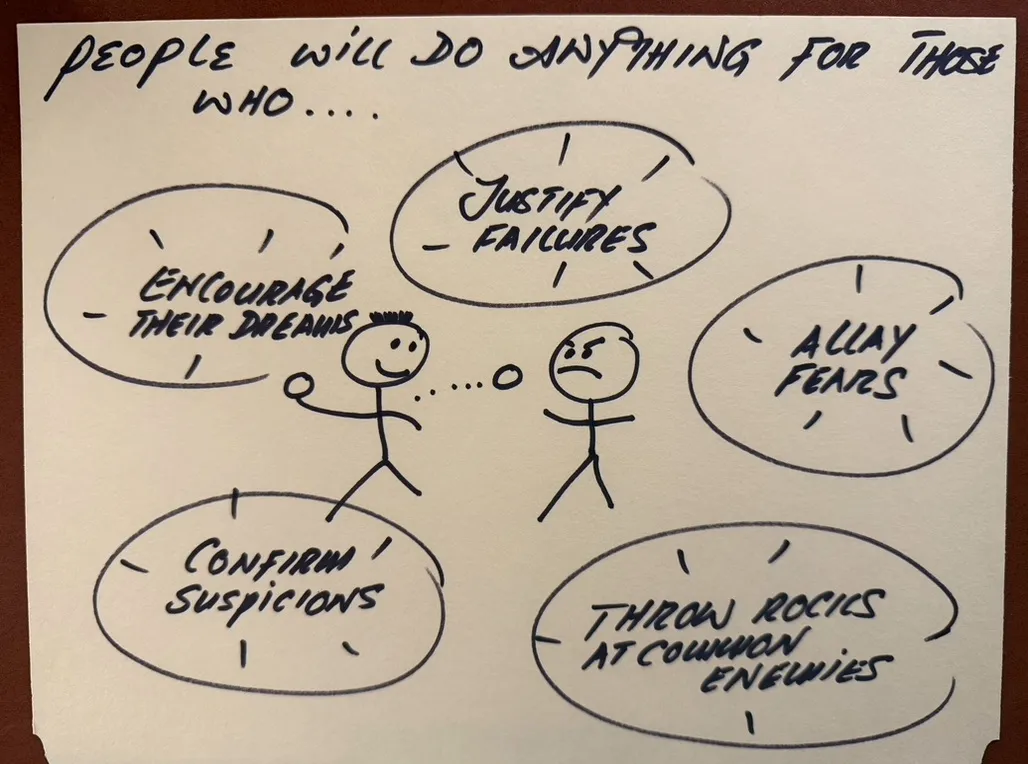 PEOPLE WILL DO ANYTHING FOR THOSE
WHO....
JUSTIFY
FAILURES
ENCOURAGE
THEIR DREAMS
ALLAY
FEARS
CONFIRM
SUSPICIONS
THROW ROCKS
AT COMMON
ENEMIES